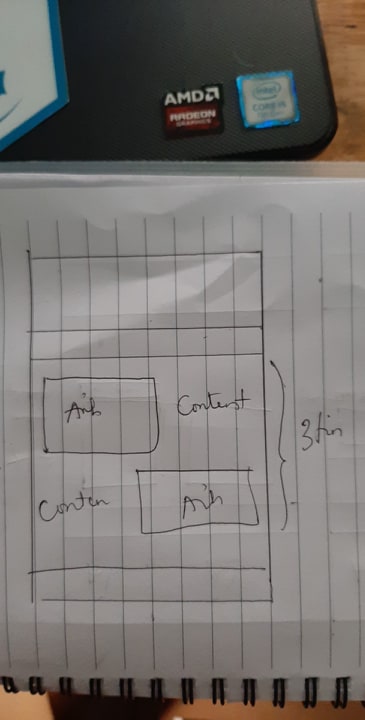 AMD
RADEON
GRAPHICS
intel
CORE i5
Ảnh
Content
3 tin
Conten
Ảnh